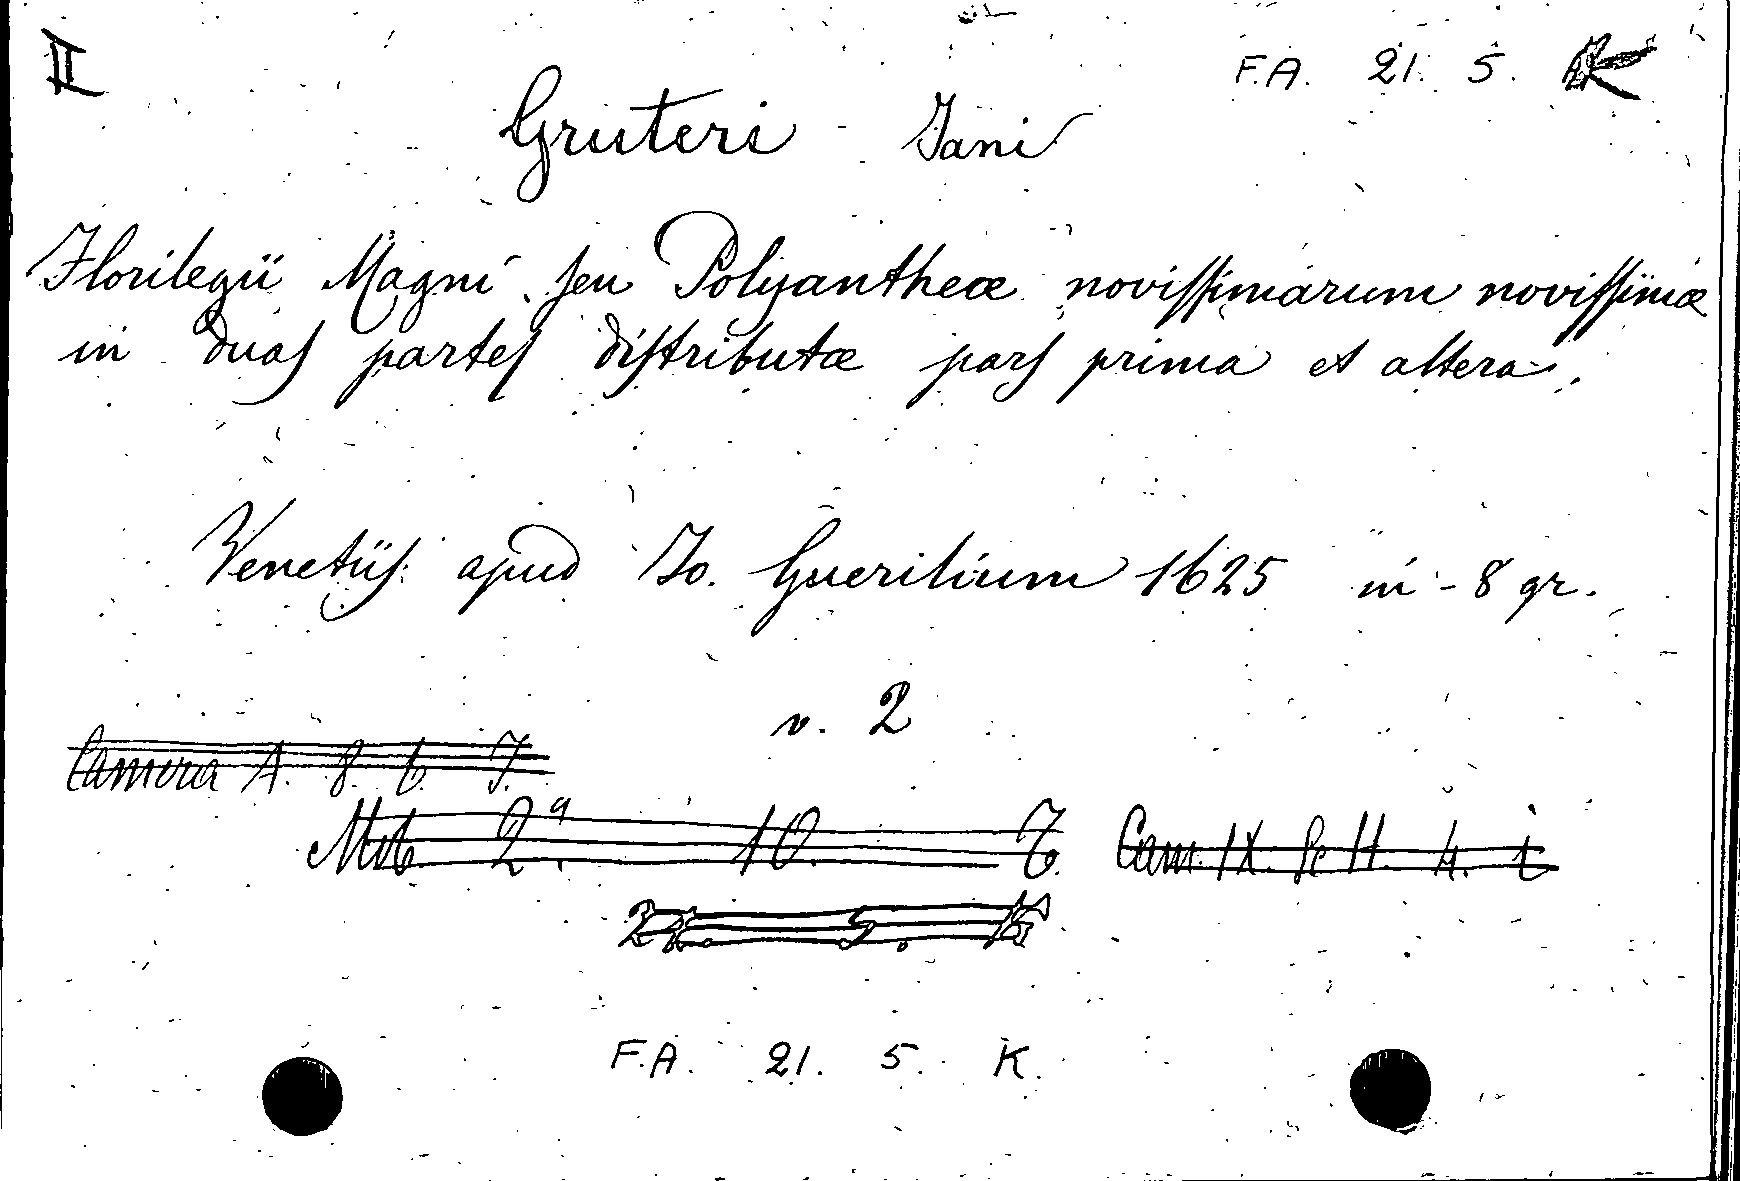 II
F.A. 21. 5. K
Gruteri Jani
Florilegii Magni seu Polyantheæ novissimarum novissimæ
in duas partes distributæ pars prima et altera.
Venetiis apud Jo. Guerilium 1625 in-8 gr.
v. 2
Camera A. 8. 6. 7.
2ª. 10. Cam. IX. H. 4. i
21. 5. K
F.A. 21. 5. K.